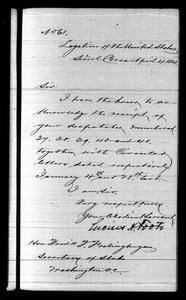 No 61.
Legation of the United States
Seoul Corea April 4, 188
Sir.
I have the honor to ac-
knowledge the receipt of
your despatches numbered
37, 38, 39, 40 and 41,
together with Circular
letters dated respectively
January 4 and 28th last
I am Sir,
Very respectfully
Your Obedient Servant
Lucius H. Foote
Hon Fred'k T. Frelinghuysen
Secretary of State
Washington D.C.